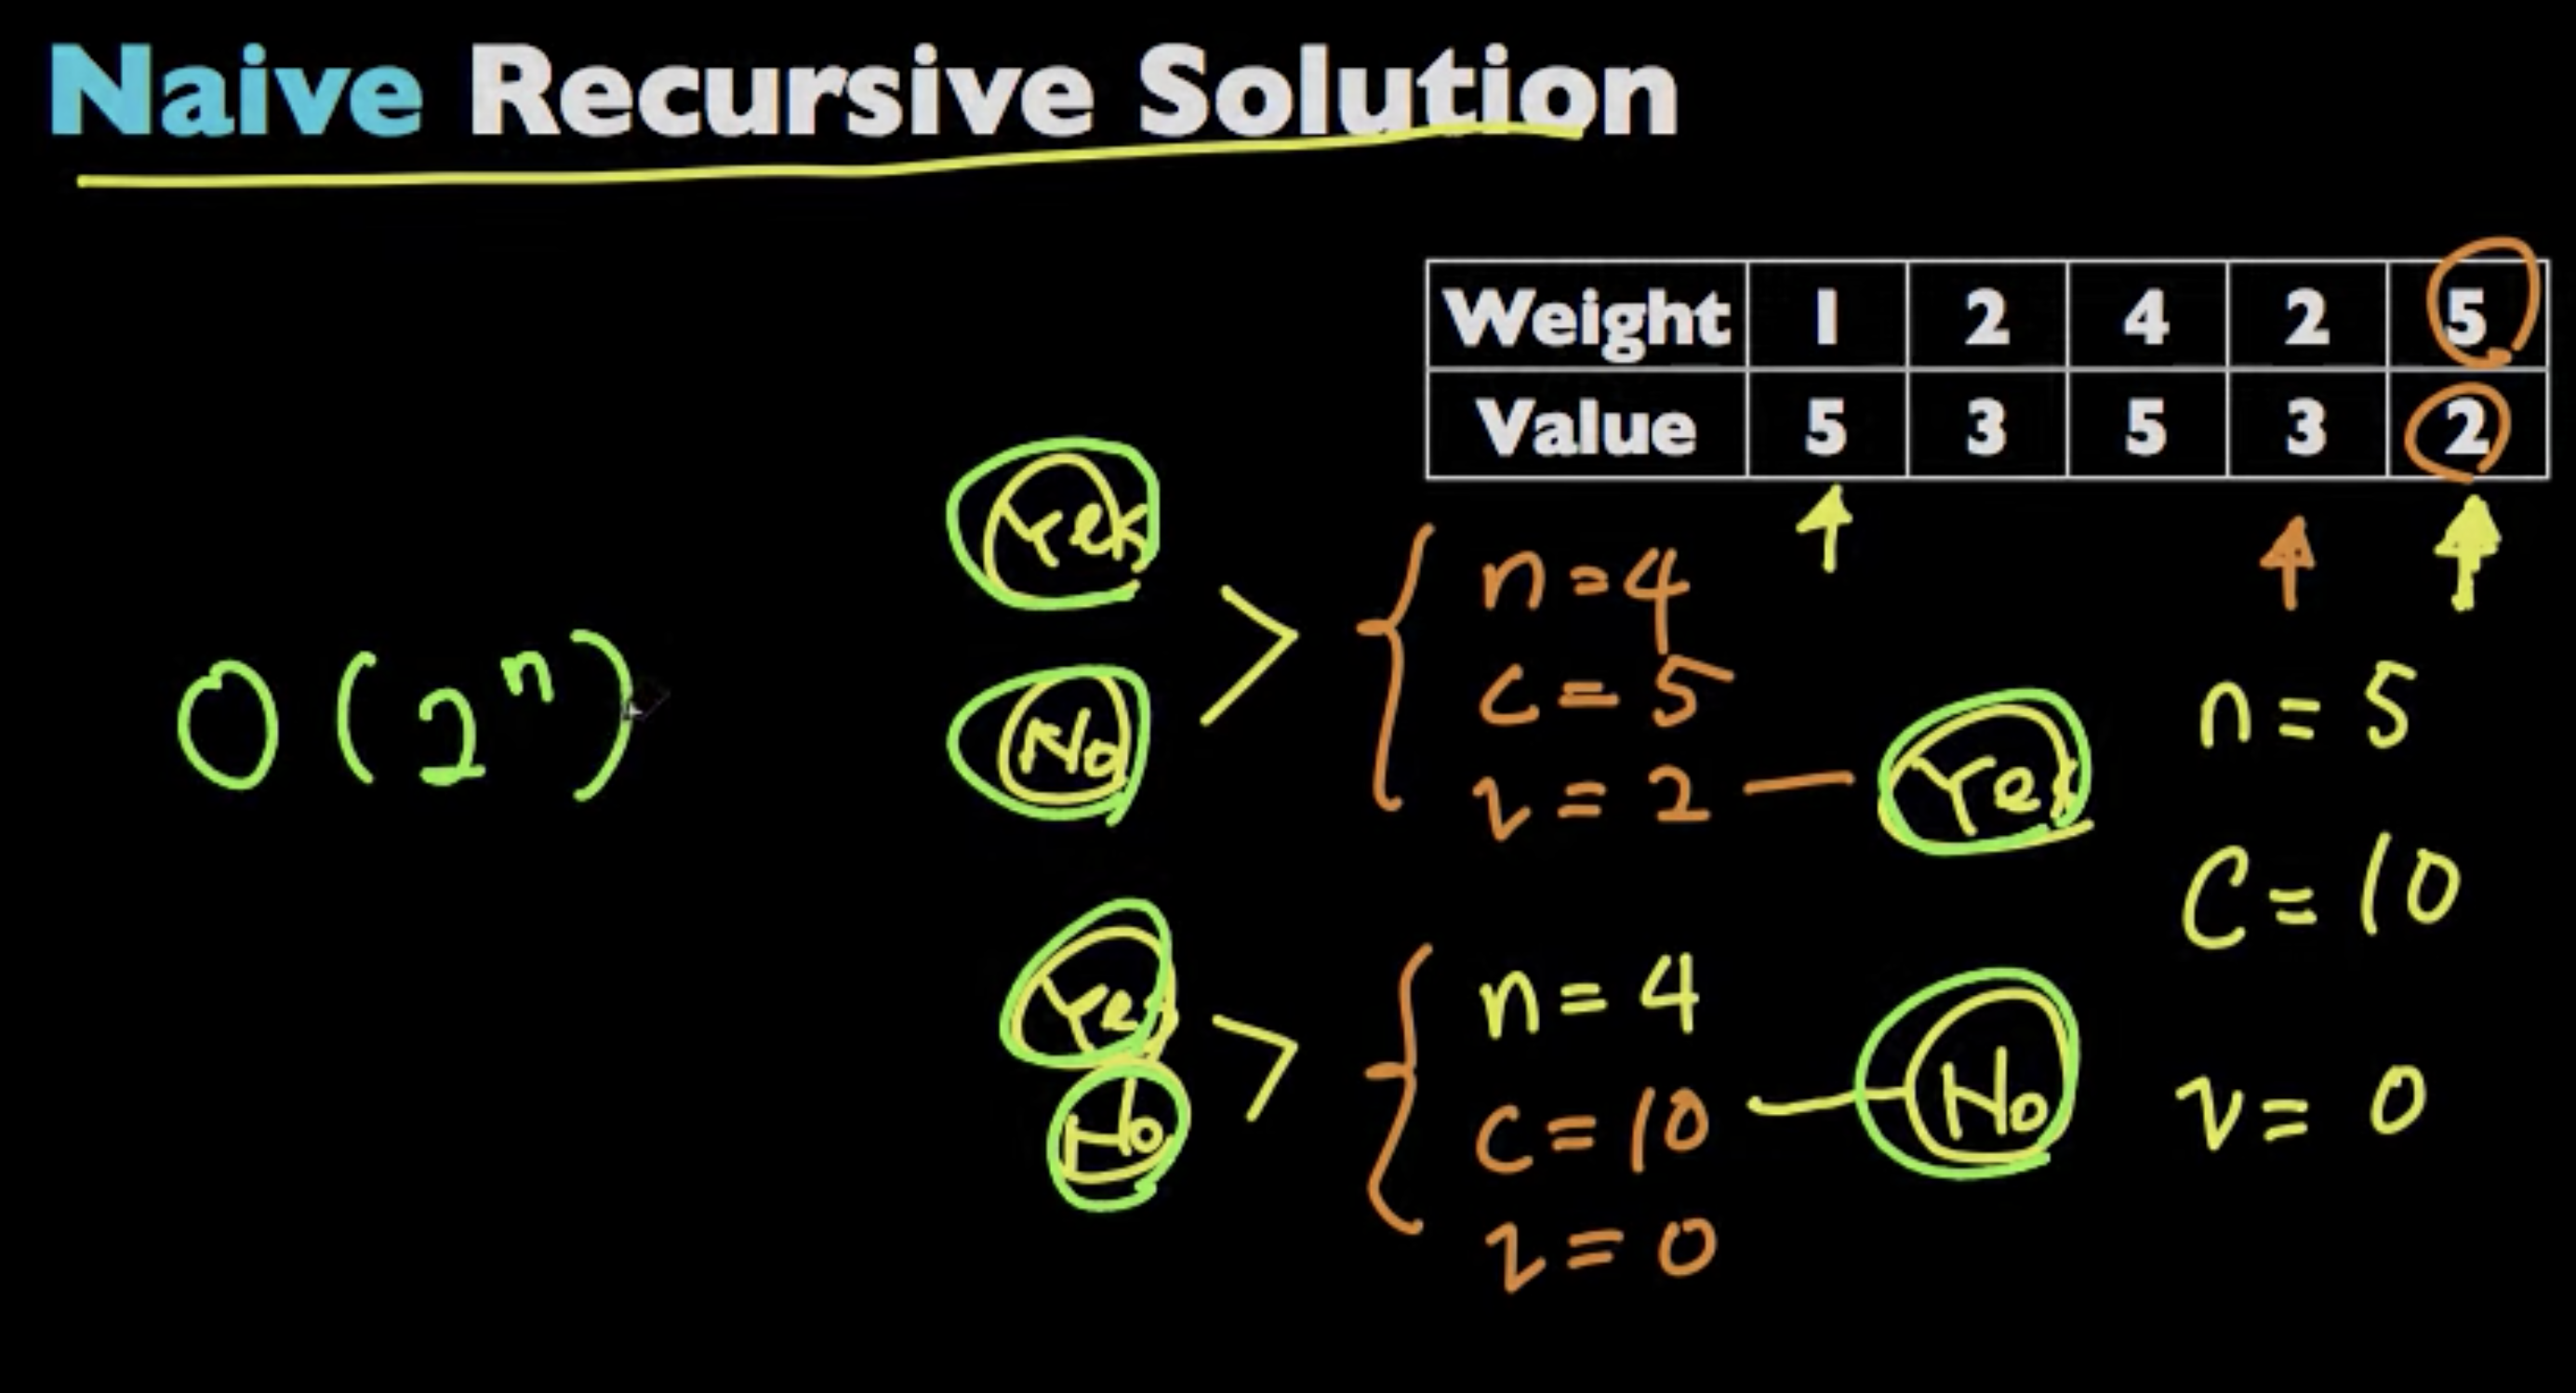 Naive Recursive Solution
Weight 1 2 4 2 5
Value 5 3 5 3 2
Yes
No
O(2ⁿ)
n = 4
c = 5
v = 2
Yes
n = 5
C = 10
v = 0
Yes
No
n = 4
c = 10
v = 0
No